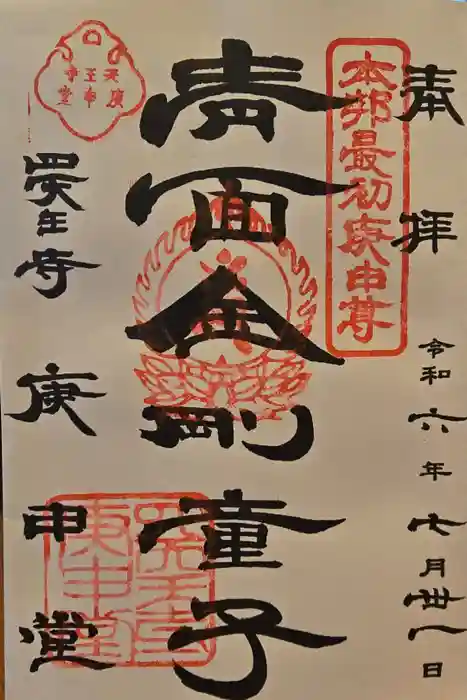 奉拝
令和六年七月丗一日
本邦最初庚申尊
青面金剛童子
四天王寺
庚申堂
四天王寺
庚申堂